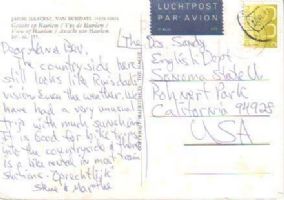 JACOB ISAACKSZ. VAN RUISDAEL
Gezicht op Haarlem / Vue de Haarlem /
View of Haarlem / Ansicht von Haarlem
LUCHTPOST
PAR AVION
Dear
The countryside here
still looks like Ruisdael's
vision. Even the weather. We
have had a very unusual
trip with much sunshine
It is good for bike trips
into the countryside & there
is a bike rental in most train
stations. "Oprechtlijk"
& Martha
The
Drs. Sandy
English Dept
Sonoma State U
Rohnert Park
California 94928
USA